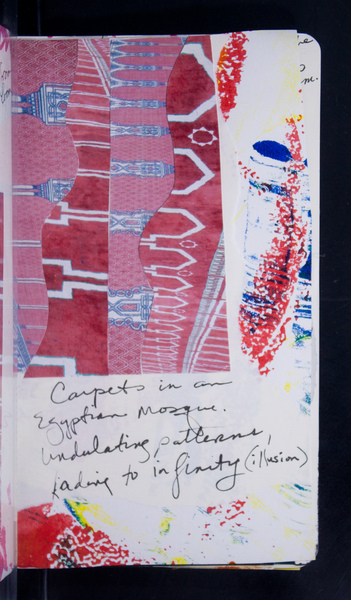 Carpets in an
Egyptian Mosque.
Undulating patterns,
fading to infinity (illusion)